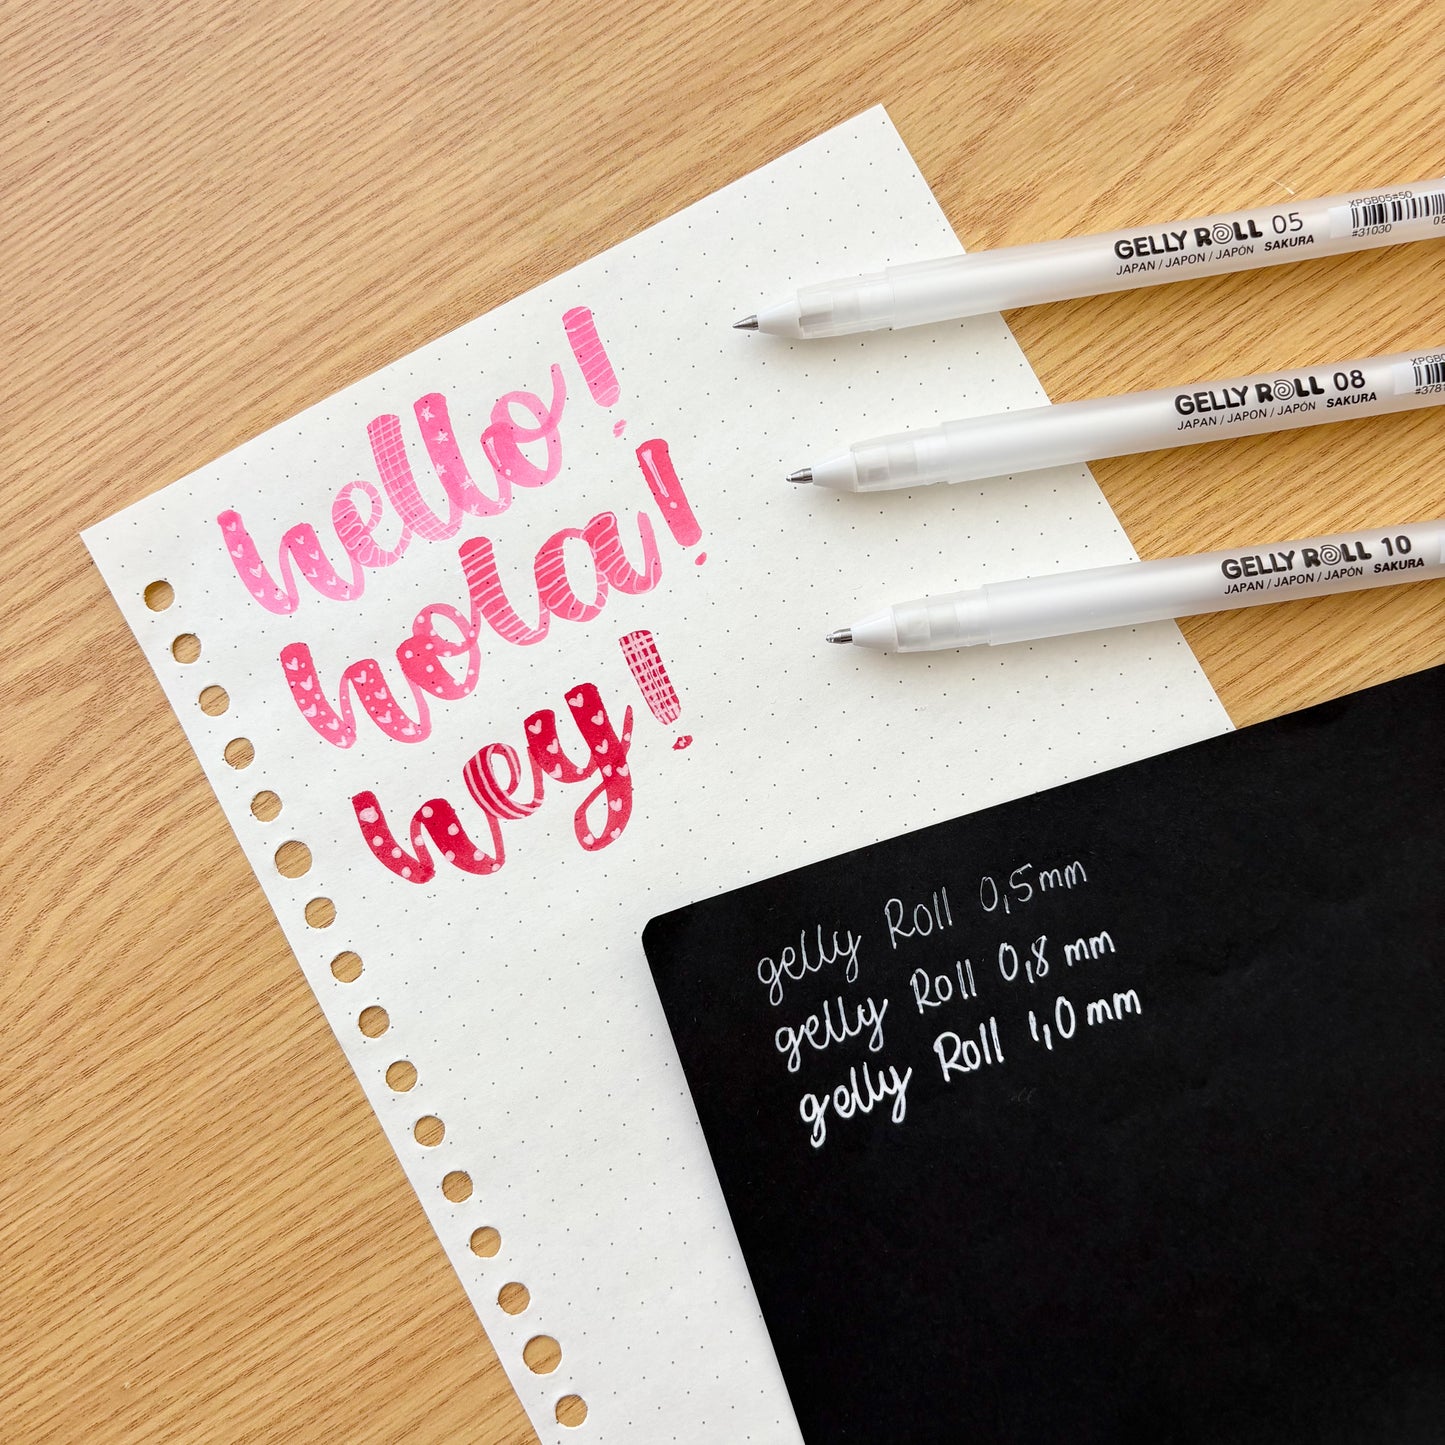 hello!
hola!
hey!
GELLY ROLL 05
JAPAN / JAPON / JAPÓN SAKURA
XPGB05#50
#31030
GELLY ROLL 08
JAPAN / JAPON / JAPÓN SAKURA
GELLY ROLL 10
JAPAN / JAPON / JAPÓN SAKURA
gelly Roll 0,5mm
gelly Roll 0,8 mm
gelly Roll 1,0 mm